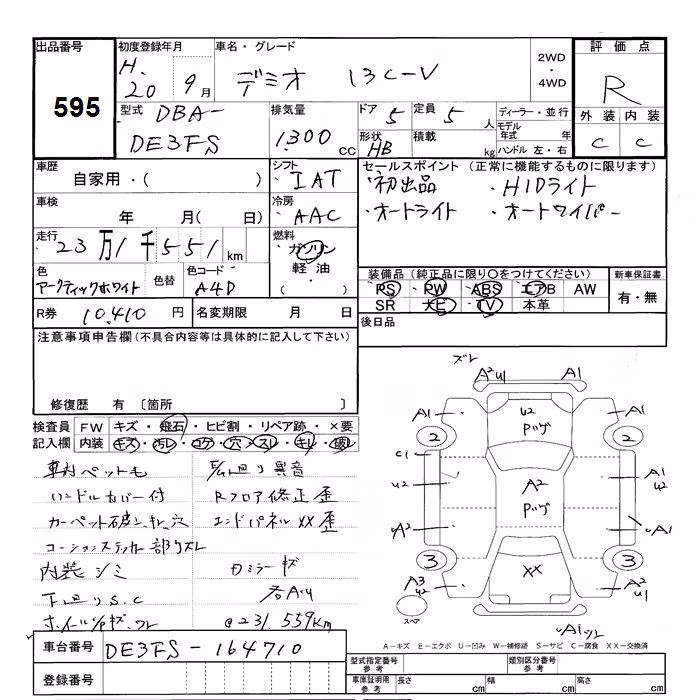 出品番号
595
初度登録年月
H. 20 9月
車名・グレード
デミオ 13C-V
2WD
・
4WD
評価点
R
外装 内装
C C
型式 DBA-
DE3FS
排気量
1300 cc
ドア 5
定員 5 人
形状 HB
積載 kg
ディーラー・並行
モデル年式 年
ハンドル 左・右
車歴
自家用・( )
シフト
IAT
車検
年 月( 日)
冷房
AAC
走行
23万1千551km
燃料
・ガソリン
軽油
・( )
色
アークティックホワイト
色替
色コード
A4D
セールスポイント (正常に機能するものに限ります)
・初出品 ・HIDライト
・オートライト ・オートワイパー
装備品(純正品に限り〇をつけてください)
PS PW ABS エアB AW
SR ナビ TV 本革
新車保証書
有・無
R券 10,410 円
名変期限 月 日
後日品
注意事項申告欄(不具合内容等は具体的に記入して下さい)
修復歴 有 〔箇所 〕
検査員記入欄
FW キズ・飛石・ヒビ割・リペア跡・×要
内装 キズ・汚レ・コゲ・穴・スレ・キレ・破レ
車内ペット毛
ハンドルカバー付
カーペット破レ、キレ、穴
コーションステッカー部切ズレ
内装シミ
下廻りS.C
Rフロア修正歪
エンドパネルXX歪
ドミラーキズ
@231,559km
車台番号 DE3FS-164710
登録番号
ズレ
A²U1 A1
A1 U2 Pツゲ A1
2 2
C1
U2 A² Pツゲ A1 U2
A² A1
3 XX 3
A3 U2 A² U1
スペア
A1
A－キズ E－エクボ U－凹み W－補修跡 S－サビ C－腐食 XX－交換済
型式指定番号 参考
類別区分番号 参考
車庫証明用 参考
長さ cm
幅 cm
高さ cm